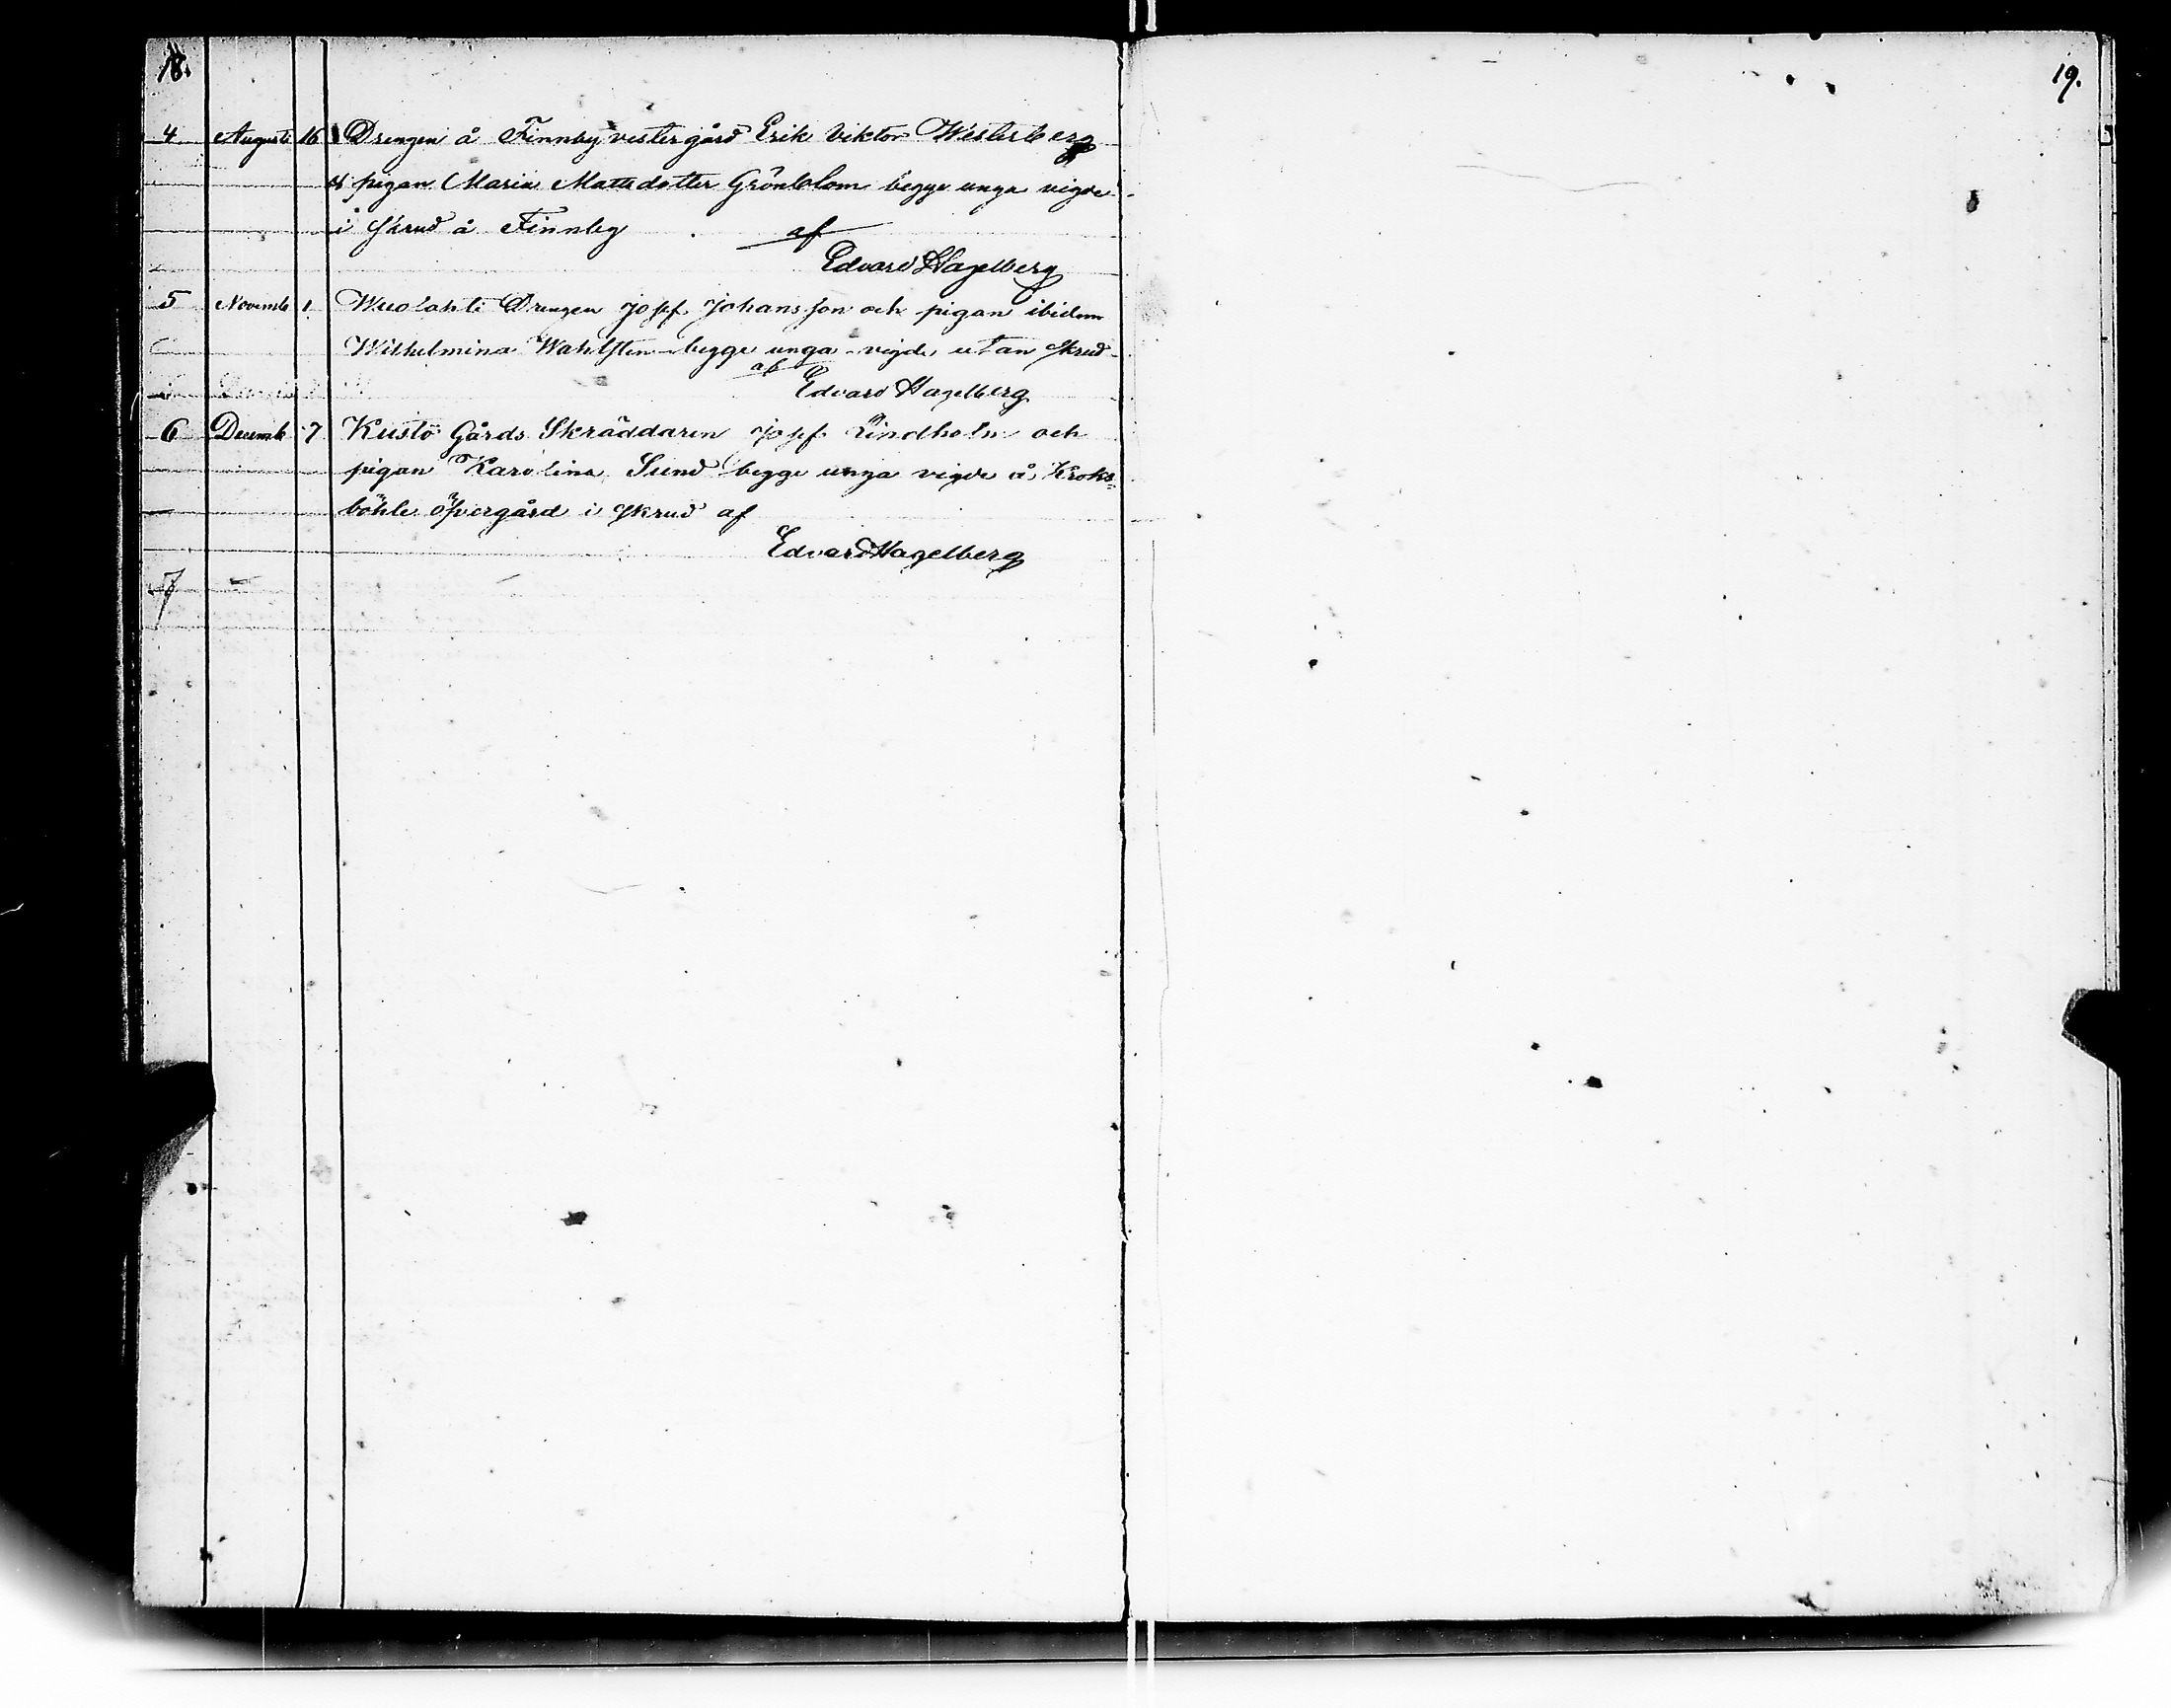 18.
19.
4 Augusti 16 Drengen å Finnby vestergård Erik Viktor Westerberg
pigan Maria Mattsdotter Grönblom begge unga vigde
i skrud å Finnby af
Edvard Hagelberg
5 Novemb 1 Wuolahti Drengen Josef Johansson och pigan ibidem
Wilhelmina Wahlsten begge unga vigde utan skrud
af Edvard Hagelberg
6 Decemb 7 Kustö Gårds Skräddaren Josef Lindholm och
pigan Karolina Sund begge unga vigde å Kroks=
böhle öfvergård i skrud af
Edvard Hagelberg
7